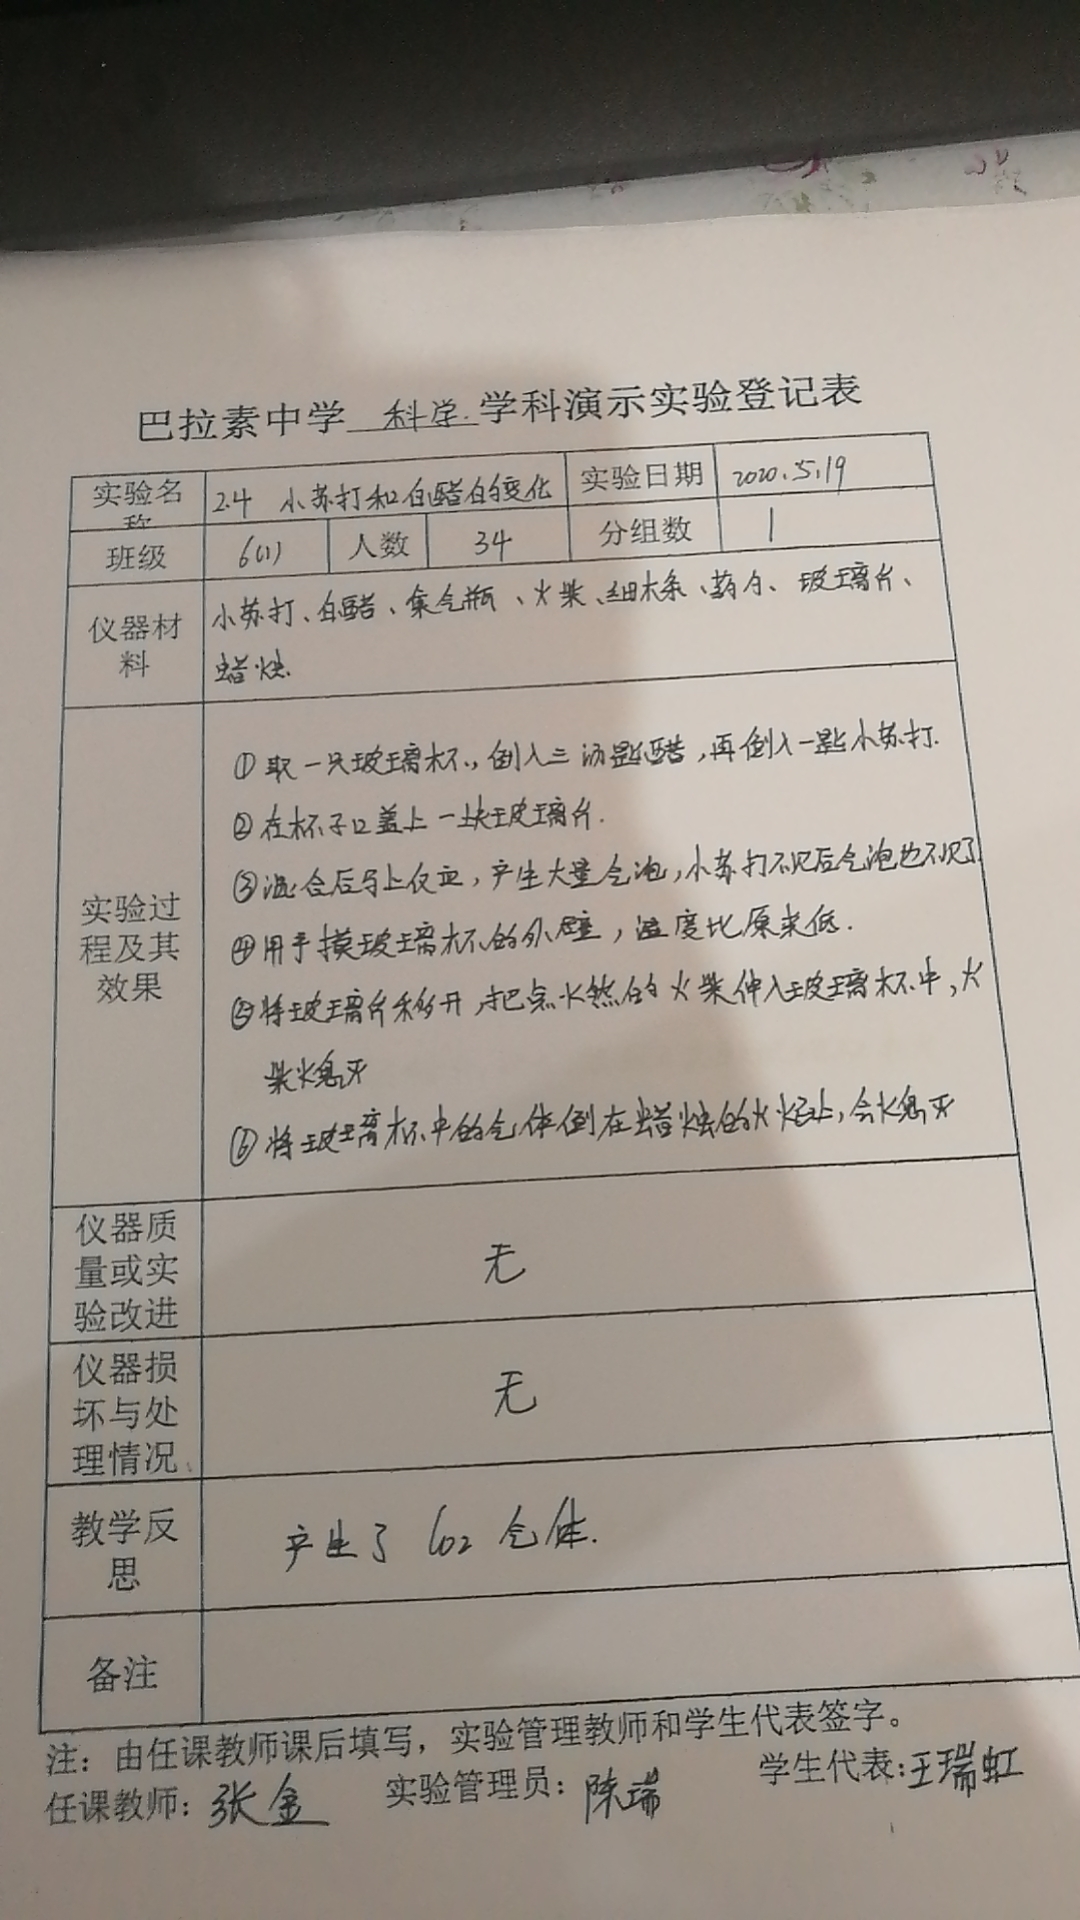 巴拉素中学 科学 学科演示实验登记表
实验名称 2.4 小苏打和白醋的变化 实验日期 2020.5.19
班级 6(1) 人数 34 分组数 1
仪器材料 小苏打、白醋、集气瓶、火柴、细木条、药勺、玻璃片、
蜡烛.
实验过程及其效果
①取一只玻璃杯,倒入三汤匙醋,再倒入一匙小苏打.
②在杯子口盖上一块玻璃片.
③混合后马上反应,产生大量气泡,小苏打不见后气泡也不见了.
④用手摸玻璃杯的外壁,温度比原来低.
⑤将玻璃片移开,把点燃的火柴伸入玻璃杯中,火
柴熄灭
⑥将玻璃杯中的气体倒在蜡烛的火焰上,会熄灭
仪器质量或实验改进 无
仪器损坏与处理情况 无
教学反思 产生了CO2气体.
备注
注：由任课教师课后填写，实验管理教师和学生代表签字。
任课教师：张金 实验管理员：陈瑞 学生代表:王瑞虹